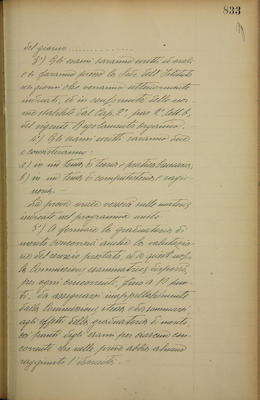 833
del giorno ..............
3º) Gli esami saranno scritti ed orali
e si faranno presso la Sede dell'Istituto
nei giorni che verranno ulteriormente
indicati, ed in conformità delle nor-
me stabilite dal Cap. 2º, par. 1º, lett. b,
del vigente Regolamento organico.
4º) Gli esami scritti saranno due
e consisteranno:
a) in un tema di tecnica e pratica bancaria;
b) in un tema di computisteria e ragio-
neria.
La prova orale verserà sulle materie
indicate nel programma unito.
5º) A formare la graduatoria di
merito concorrerà anche la valutazio-
ne del servizio prestato, ed a quest'uopo
la Commissione esaminatrice disporrà,
per ogni concorrente, fino a 10 pun-
ti, da assegnarsi inappellabilmente
dalla Commissione stessa e da sommarsi,
agli effetti della graduatoria di merito,
coi punti degli esami per ciascun con-
corrente che nelle prove abbia almeno
raggiunto l'idoneità.